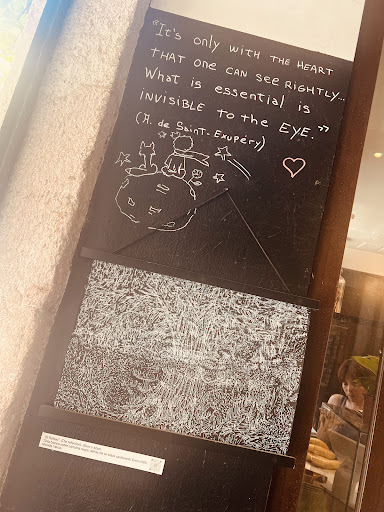 "It's only WITH THE HEART
THAT ONE CAN SEE RIGHTLY...
What is essential is
INVISIBLE TO the EYE"
(A. de Saint-Exupéry)